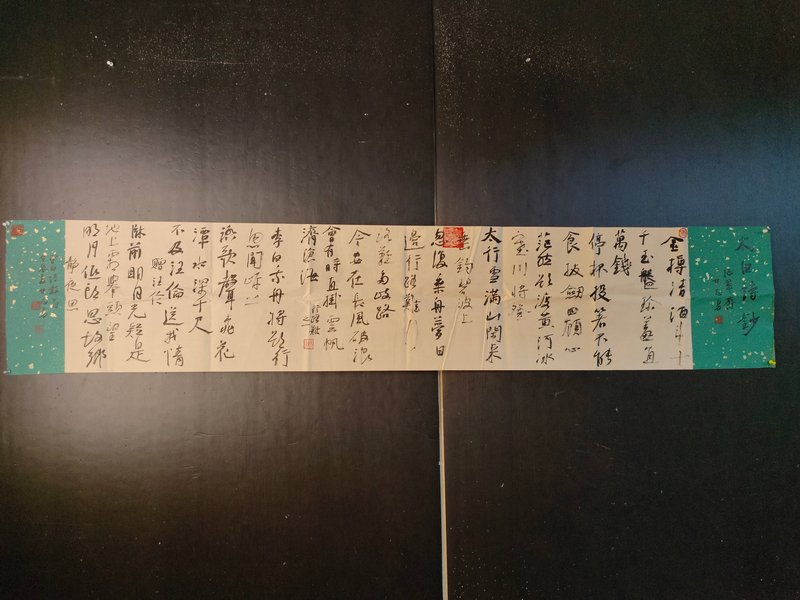 太白詩鈔
金樽清酒斗十
千玉盤珍羞直
萬錢
停杯投箸不能
食拔劍四顧心
茫欲渡黄河冰
塞川將登
太行雪滿山閒來
垂釣碧波上
忽復乘舟夢日
邊行路難
路難多歧路
今安在長風破浪
會有時直掛雲帆
濟滄海
行路難
李白乘舟將欲行
忽聞岸上
踏歌聲桃花
潭水深千尺
不及汪倫送我情
贈汪倫
床前明月光疑是
地上霜舉頭望
明月低頭思故鄉
靜夜思